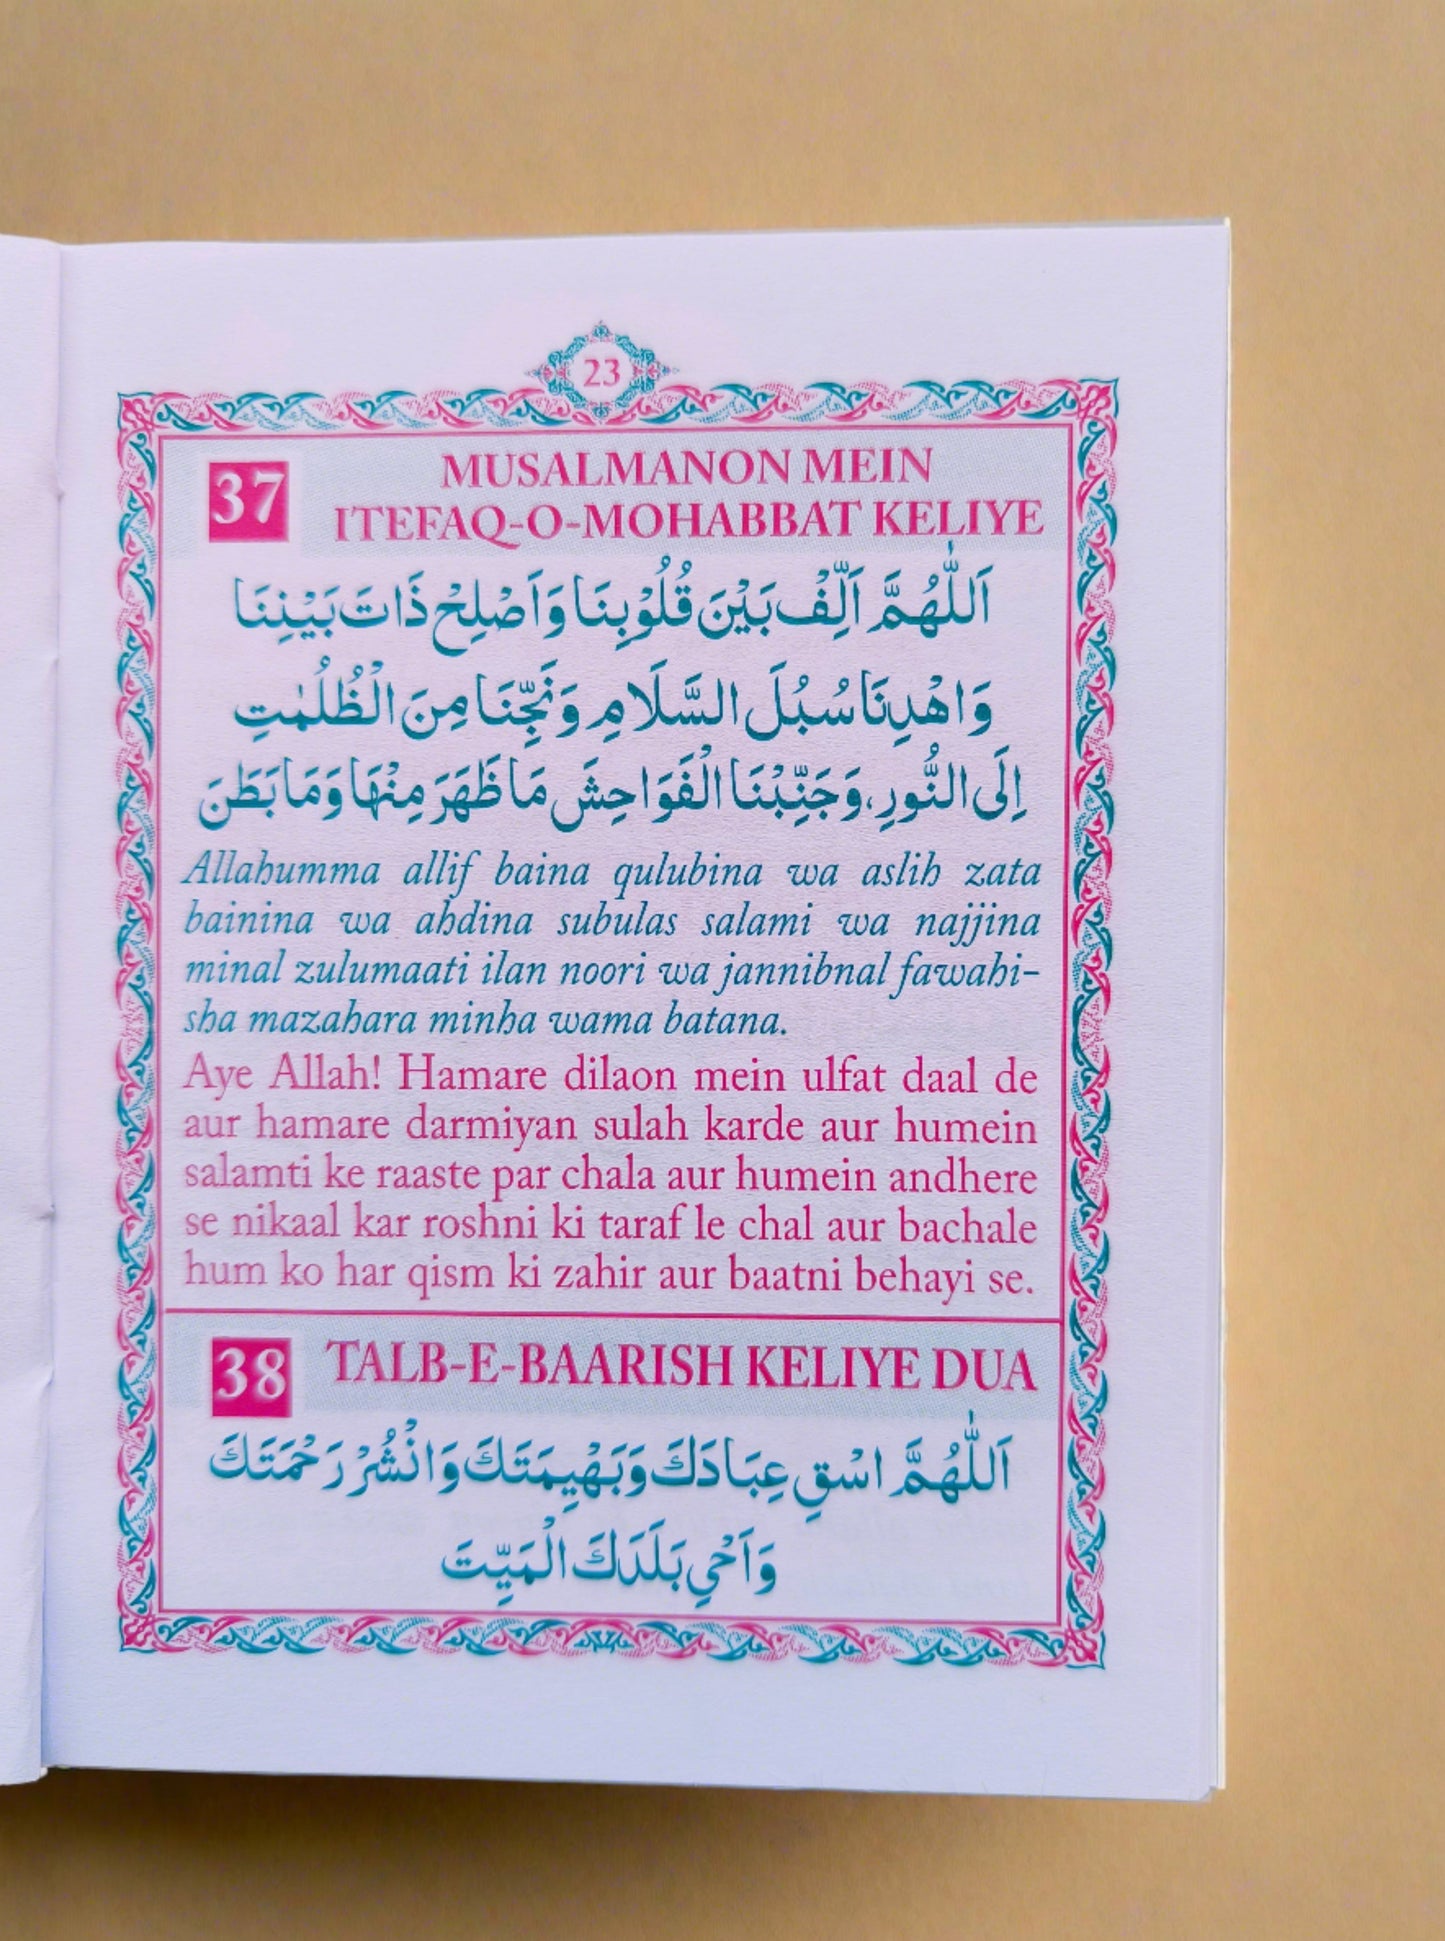 23
37
MUSALMANON MEIN
ITEFAQ-O-MOHABBAT KELIYE
اَللّٰهُمَّ اَلِّفْ بَيْنَ قُلُوْبِنَا وَاَصْلِحْ ذَاتَ بَيْنِنَا
وَاهْدِنَا سُبُلَ السَّلَامِ وَنَجِّنَا مِنَ الْظُلُمٰتِ
اِلَى النُّورِ، وَجَنِّبْنَا الْفَوَاحِشَ مَا ظَهَرَ مِنْهَا وَمَا بَطَنَ
Allahumma allif baina qulubina wa aslih zata
bainina wa ahdina subulas salami wa najjina
minal zulumaati ilan noori wa jannibnal fawahi-
sha mazahara minha wama batana.
Aye Allah! Hamare dilaon mein ulfat daal de
aur hamare darmiyan sulah karde aur humein
salamti ke raaste par chala aur humein andhere
se nikaal kar roshni ki taraf le chal aur bachale
hum ko har qism ki zahir aur baatni behayi se.
38
TALB-E-BAARISH KELIYE DUA
اَللّٰهُمَّ اسْقِ عِبَادَكَ وَبَهْيِمَتَكَ وَانْشُرْ رَحْمَتَكَ
وَاَحْيِ بَلَدَكَ الْمَيِّتَ